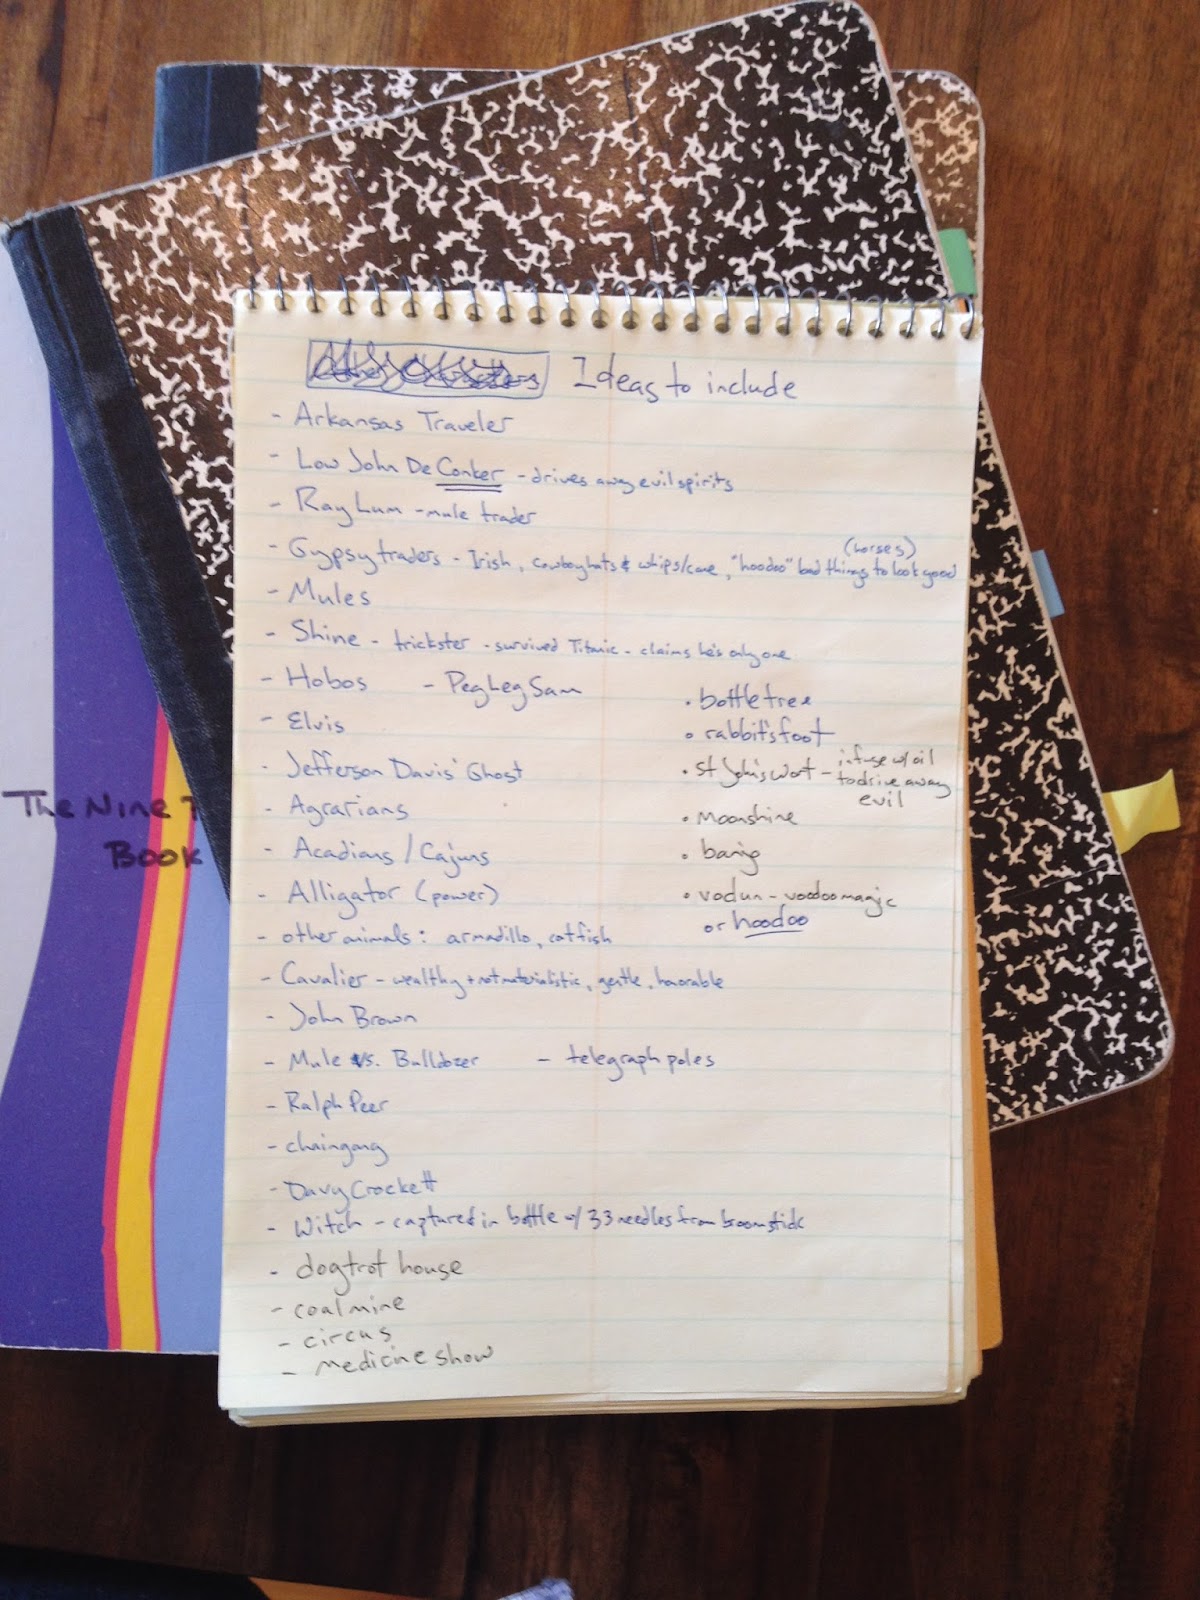 Ideas to include
- Arkansas Traveler
- Low John De Conker - drives away evil spirits
- Ray Lum - mule trader
(horses)
- Gypsy traders - Irish, cowboy hats & whips/cane, "hoodoo" bad things to look good
- Mules
- Shine - trickster - survived Titanic - claims he's only one
- Hobos - Peg Leg Sam
- Elvis
- Jefferson Davis' Ghost
- Agrarians
- Acadians / Cajuns
- Alligator (power)
- other animals: armadillo, catfish
- Cavalier - wealthy + not materialistic, gentle, honorable
- John Brown
- Mule vs. Bulldozer - telegraph poles
- Ralph Peer
- chaingang
- Davy Crockett
- Witch - captured in bottle w/ 33 needles from broomstick
- dogtrot house
- coal mine
- circus
- medicine show
• bottle tree
• rabbit's foot
• St John's Wort - infuse w/ oil
to drive away
evil
• Moonshine
• banjo
• vodun - voodoo magic
or hoodoo
The Nine
Book